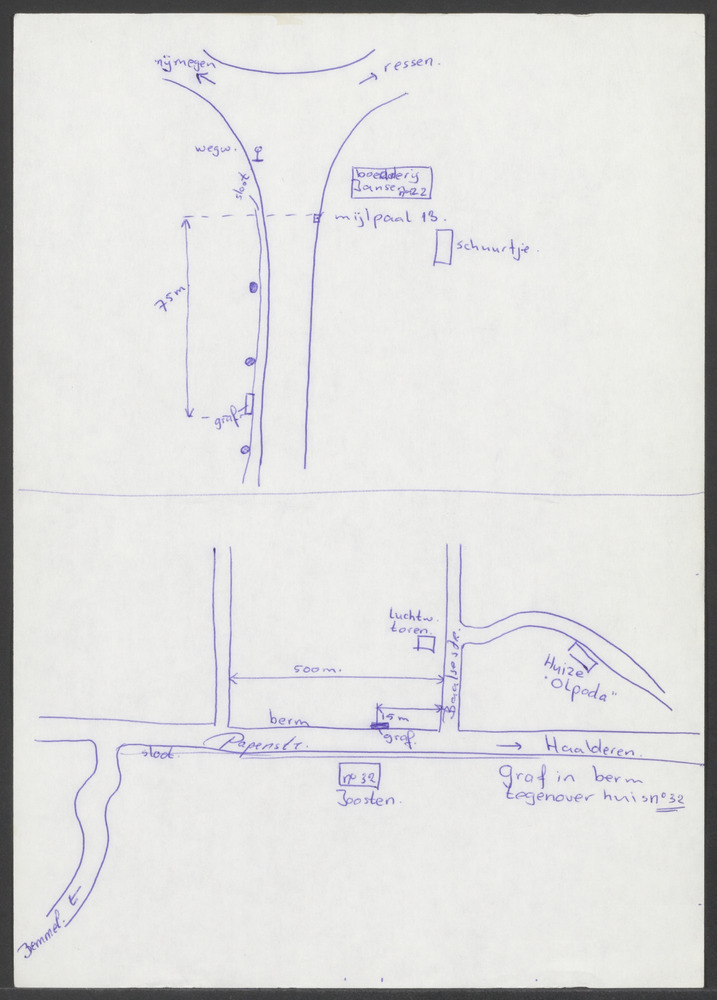 nijmegen
ressen.
wegw.
sloot
boerderij
Janse no 22
mijlpaal 13.
schuurtje.
75m
graf
Luchtw.
toren.
500m.
Huize
"Olpada"
berm
15m
graf.
Papenstr.
sloot.
Haalderen.
no 32
Joosten.
Graf in berm
tegenover huis no 32
Bemmel.